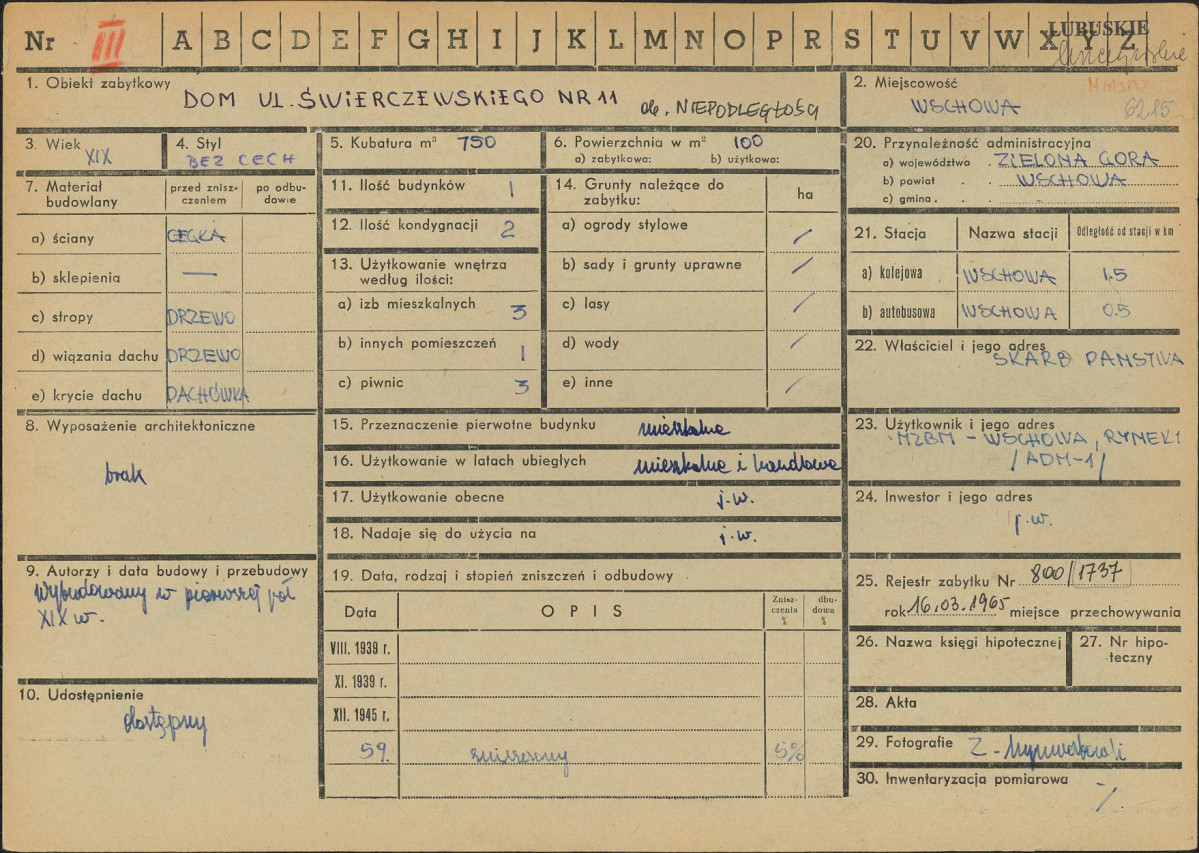 Nr III A B C D E F G H I J K L M N O P R S T U V W X Y Z LUBUSKIE
1. Obiekt zabytkowy DOM UL. ŚWIERCZEWSKIEGO NR 11 ob. NIEPODLEGŁOŚCI
2. Miejscowość MIASTO
WSCHOWA 6215
3. Wiek XIX
4. Styl BEZ CECH
5. Kubatura m³ 750
6. Powierzchnia w m² 100
a) zabytkowa: b) użytkowa:
7. Materiał budowlany
przed znisz-
czeniem
po odbu-
dowie
a) ściany CEGŁA
b) sklepienia —
c) stropy DRZEWO
d) wiązania dachu DRZEWO
e) krycie dachu DACHÓWKA
8. Wyposażenie architektoniczne
brak
9. Autorzy i data budowy i przebudowy
Wybudowany w pierwszej poł
XIX w.
10. Udostępnienie
dostępny
11. Ilość budynków 1
12. Ilość kondygnacji 2
13. Użytkowanie wnętrza
według ilości:
a) izb mieszkalnych 3
b) innych pomieszczeń 1
c) piwnic 3
14. Grunty należące do
zabytku:
ha
a) ogrody stylowe /
b) sady i grunty uprawne /
c) lasy /
d) wody /
e) inne /
15. Przeznaczenie pierwotne budynku mieszkalne
16. Użytkowanie w latach ubiegłych mieszkalne i handlowe
17. Użytkowanie obecne j.w.
18. Nadaje się do użycia na j.w.
19. Data, rodzaj i stopień zniszczeń i odbudowy
Data OPIS
Znisz-
czenia
%
dbu-
dowa
%
VIII. 1939 r.
XI. 1939 r.
XII. 1945 r.
59. zniszczony 5%
20. Przynależność administracyjna
a) województwo ZIELONA GÓRA
b) powiat WSCHOWA
c) gmina
21. Stacja Nazwa stacji Odległość od stacji w km
a) kolejowa WSCHOWA 1.5
b) autobusowa WSCHOWA 0.5
22. Właściciel i jego adres
SKARB PAŃSTWA
23. Użytkownik i jego adres
MZBM - WSCHOWA, RYNEK 1
/ADM-1/
24. Inwestor i jego adres
j.w.
25. Rejestr zabytku Nr 800/1737
rok 16.03.1965 miejsce przechowywania
26. Nazwa księgi hipotecznej
27. Nr hipo-
teczny
28. Akta
29. Fotografie 2 -
30. Inwentaryzacja pomiarowa
-/.